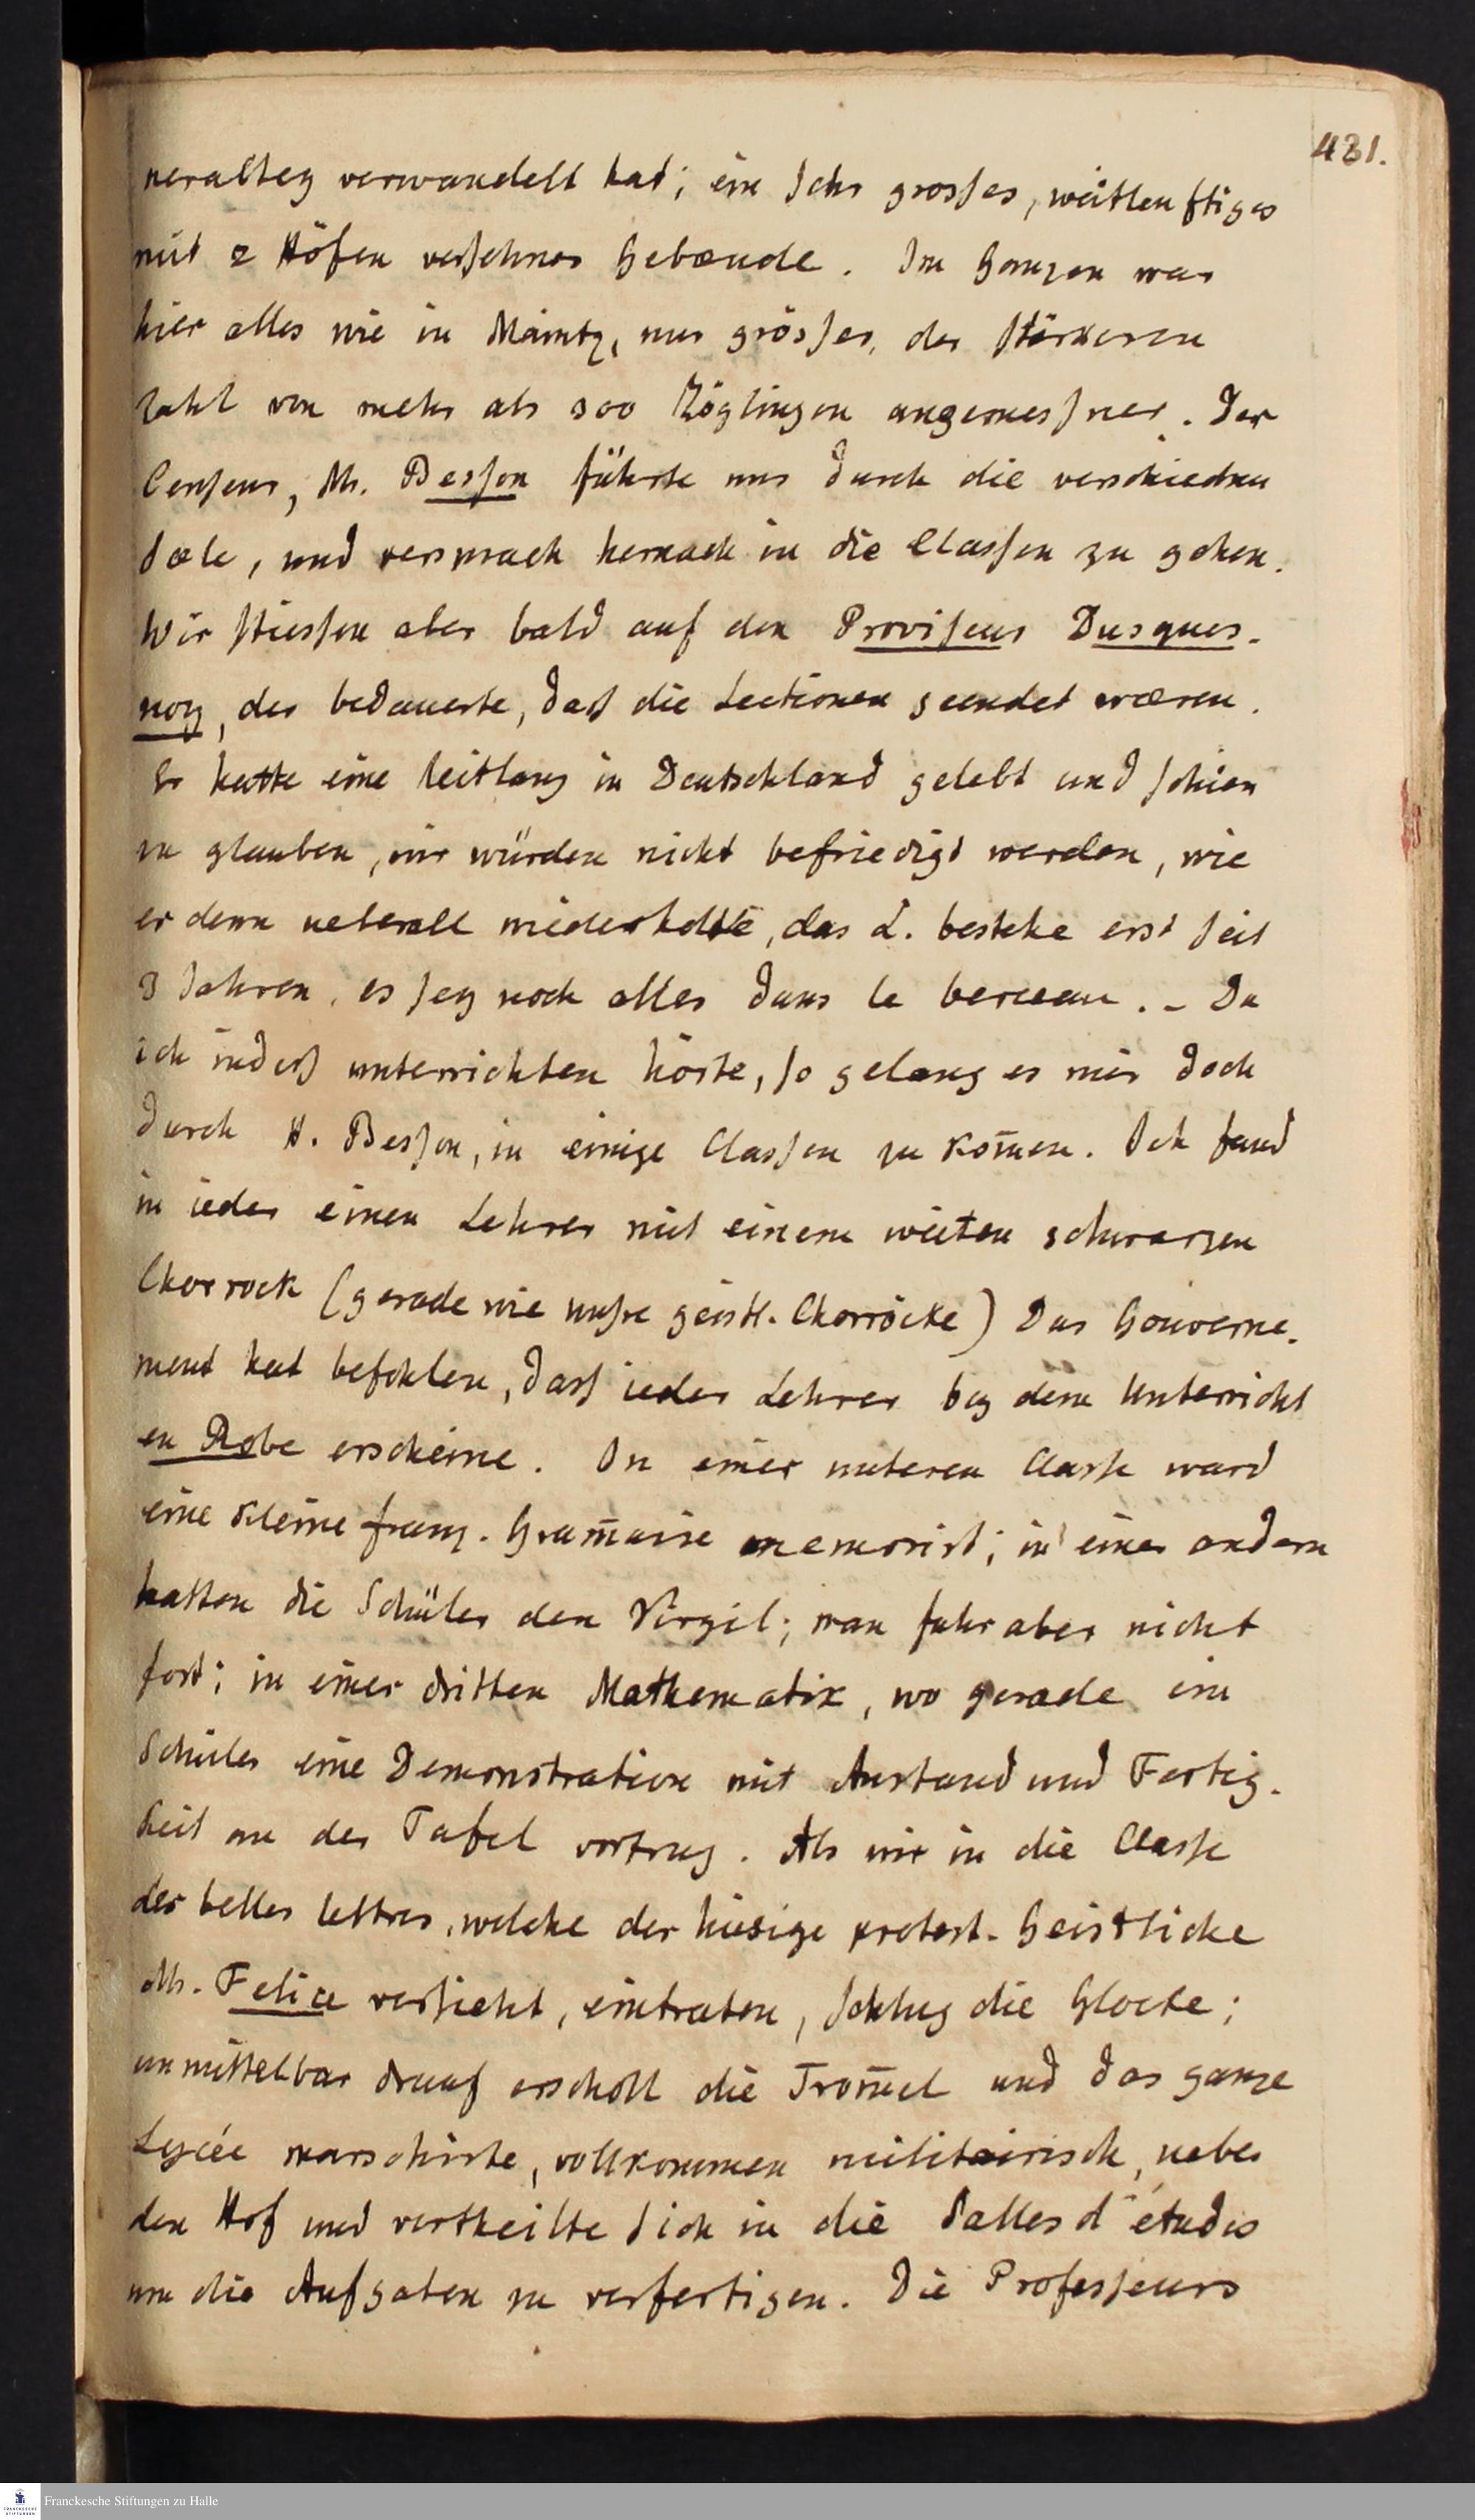 431.
neraltey verwandelt hat; ein sehr grosses, weitleuftiges
mit 2 Höfen versehnes Gebæude. Im Ganzen war
hier alles wie in Maintz, nur grösser, der stärkeren
Zahl von mehr als 300 Zöglingen angemessner. Der
Censeur, Mr. Besson führte uns durch die verschiednen
Sæle, und versprach hernach in die Classen zu gehen.
Wir stiessen aber bald auf den Proviseur Dusques-
noy, der bedauerte, daß die Lectionen geendet wæren.
Er hatte eine Zeitlang in Deutschland gelebt und schien
zu glauben, wir würden nicht befriedigt werden, wie
er denn ueberall wiederholte, das L. bestehe erst seit
3 Jahren, es sey noch alles dans le berceau. – Da
ich indeß unterrichten hörte, so gelang es mir doch
durch H. Besson, in einige Classen zu kom̄en. Ich fand
in ieder einen Lehrer mit einem weiten schwarzen
Chorrock (gerade wie unsre geistl. Chorröcke) Das Gouverne-
ment hat befohlen, dass ieder Lehrer bey dem Unterricht
en Robe erscheine. In einer unteren Classe ward
eine kleine franz. Gram̄aire memorirt; in einer andern
hatten die Schüler den Virgil; man fuhr aber nicht
fort; in einer dritten Mathematik, wo gerade ein
Schüler eine Demonstration mit Anstand und Fertig-
keit an der Tafel vortrug. Als wir in die Classe
der belles lettres, welche der hiesige protest. Geistliche
Mr. Felice versieht, eintraten, schlug die Glocke;
unmittelbar drauf erscholl die Trom̄el und das ganze
Lycée marschirte, vollkommen militairisch, ueber
den Hof und vertheilte sich in die Salles d'études
um die Aufgaben zu verfertigen. Die Professeurs
Franckesche Stiftungen zu Halle